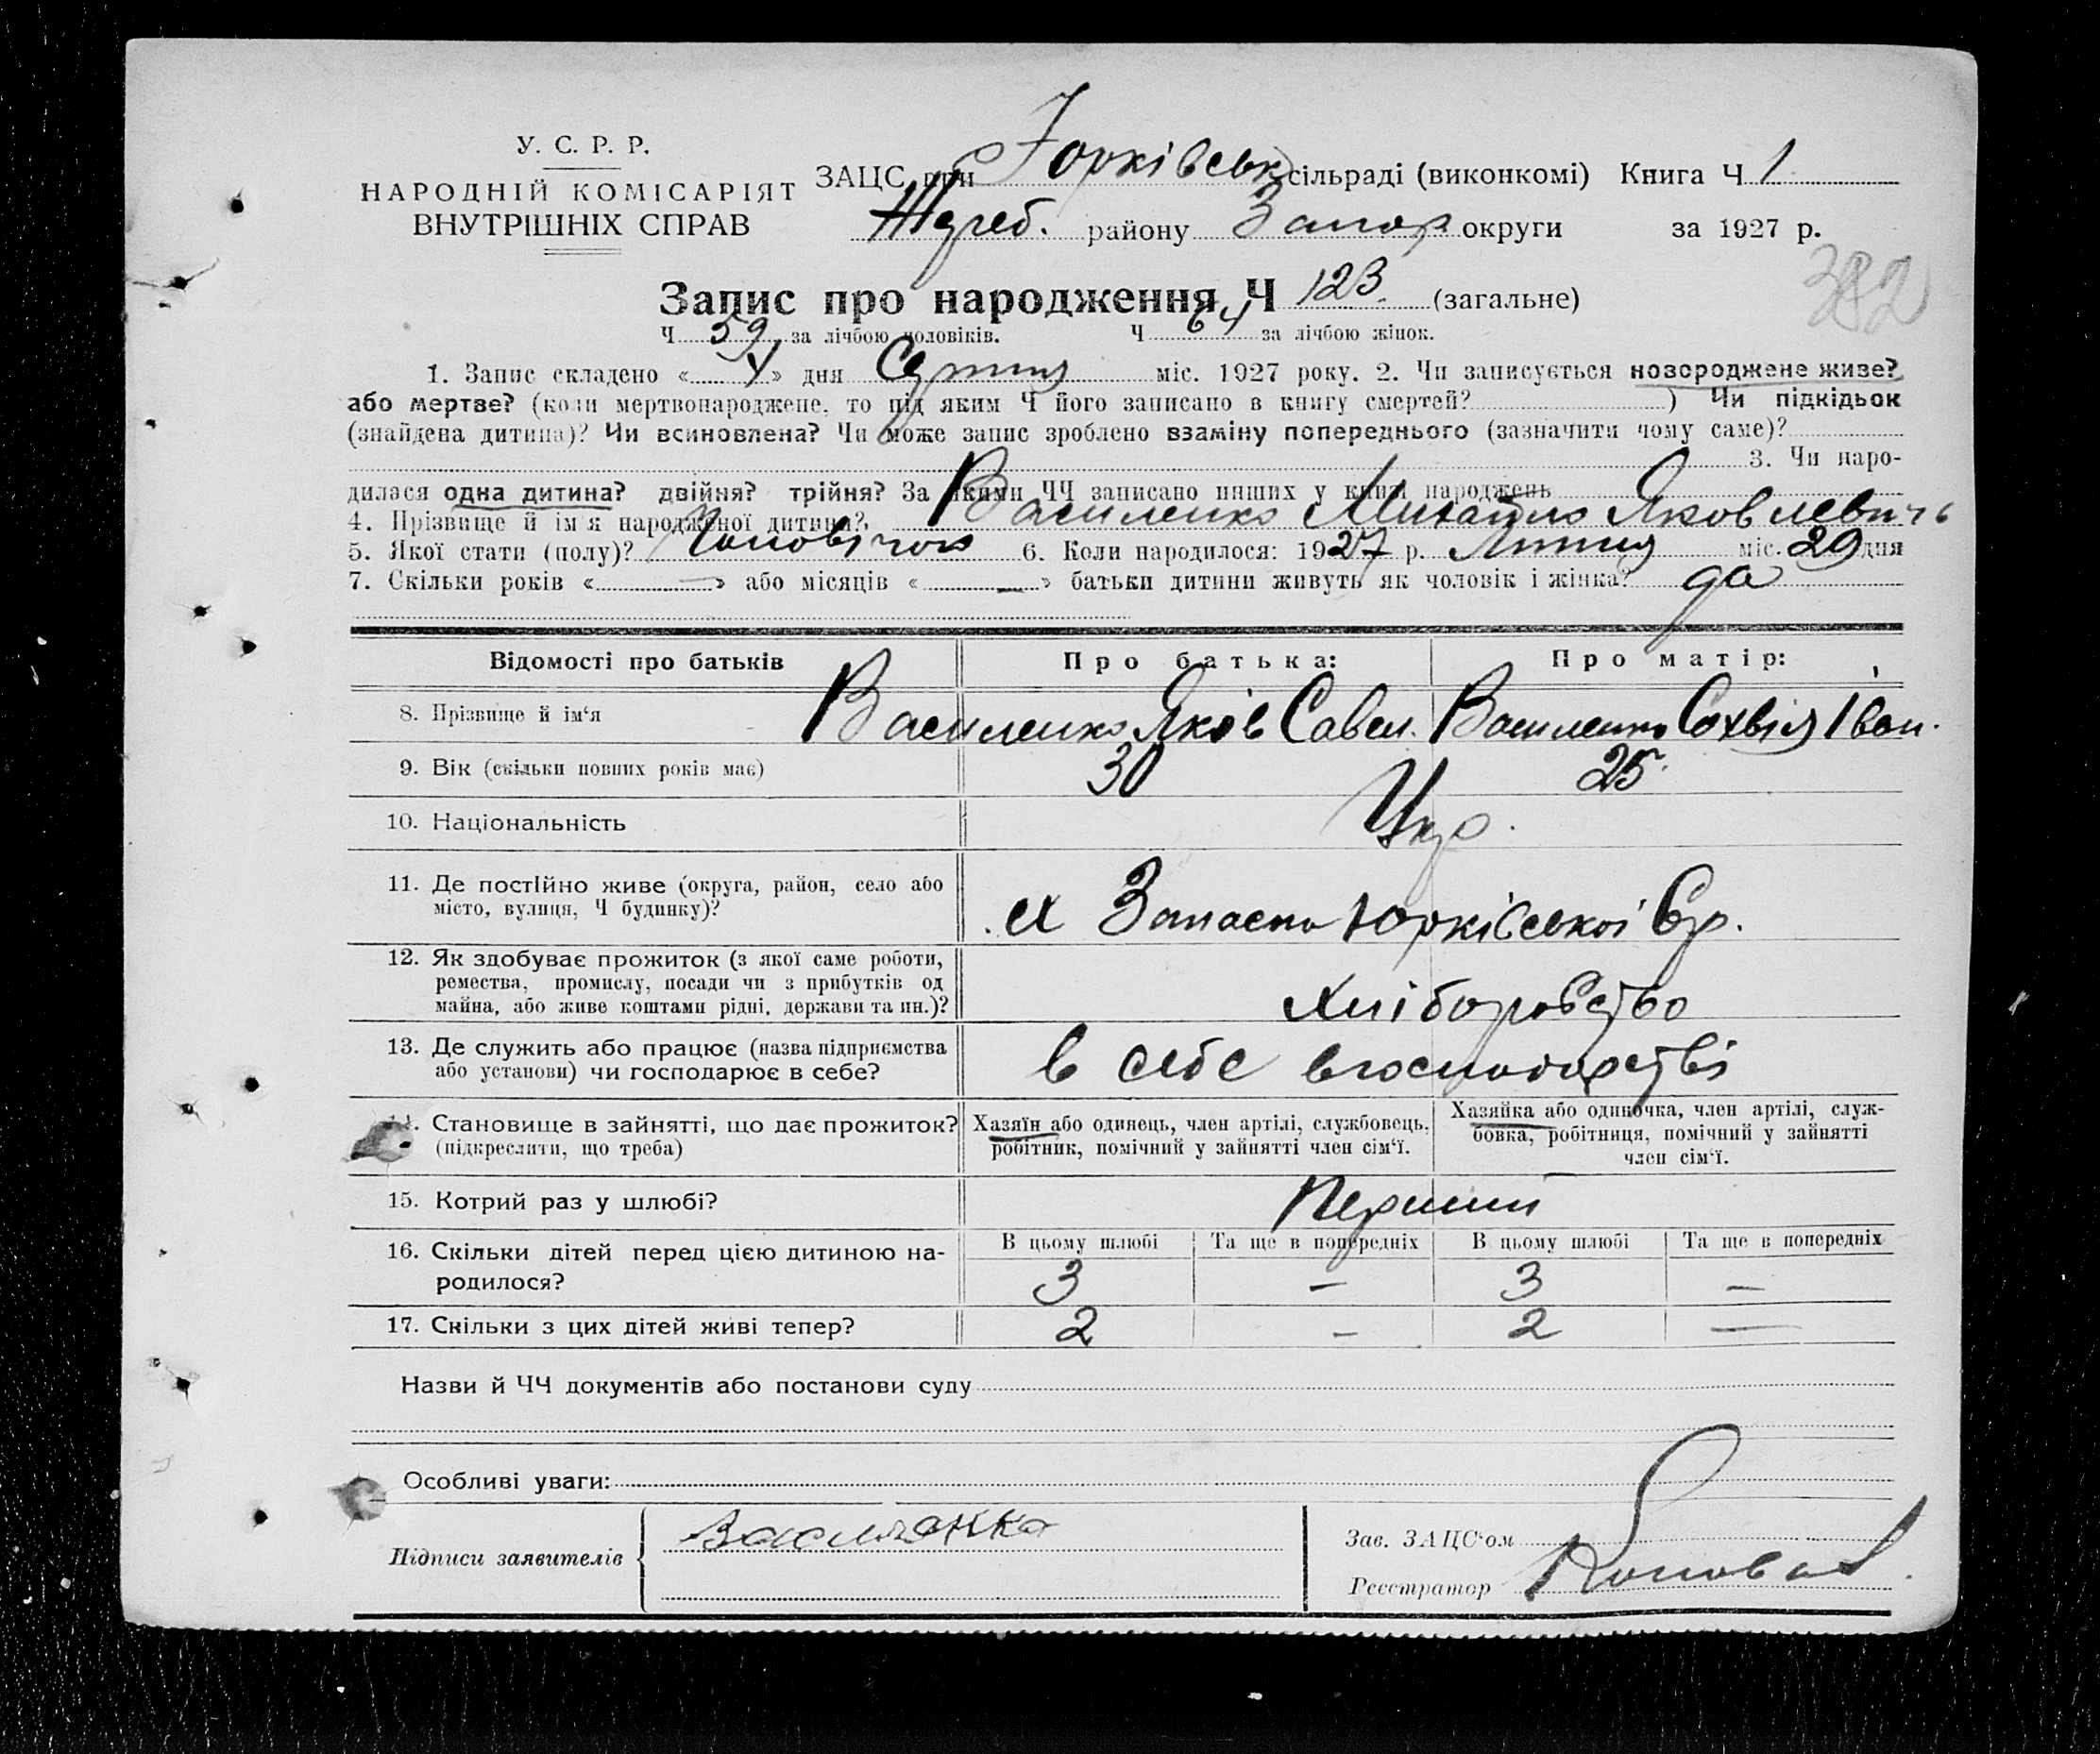 У. С. Р. Р.
НАРОДНІЙ КОМІСАРІЯТ
ВНУТРІШНІХ СПРАВ
ЗАЦС при Юрківськ сільраді (виконкомі) Книга Ч 1
Жереб. району Запор округи за 1927 р.
382
Запис про народження Ч 123. (загальне)
Ч 59 за лічбою чоловіків. Ч 64 за лічбою жінок.
1. Запис складено « 4 » дня Серпня міс. 1927 року. 2. Чи записується новороджене живе?
або мертве? (коли мертвонароджене, то під яким Ч його записано в книгу смертей? ) Чи підкідьок
(знайдена дитина)? Чи всиновлена? Чи може запис зроблено взаміну попереднього (зазначити чому саме)?
3. Чи наро-
дилася одна дитина? двійня? трійня? За якими ЧЧ записано инших у книзі народжень
4. Прізвище й ім'я народженої дитини? Василенко Михайло Яковлевичь
5. Якої стати (полу)? Чоловічої 6. Коли народилося: 1927 р. Липня міс. 29 дня
7. Скільки років « — » або місяців « — » батьки дитини живуть як чоловік і жінка? да
Відомості про батьків Про батька: Про матір:
8. Прізвище й ім'я Василенко Яків Савел. Василенко Сохвія Іван.
9. Вік (скільки повних років має) 30 25.
10. Національність Укр.
11. Де постійно живе (округа, район, село або
місто, вулиця, Ч будинку)? Юрківської С/р.
12. Як здобуває прожиток (з якої саме роботи,
ремества, промислу, посади чи з прибутків од
майна, або живе коштами рідні, держави та ин.)? Хліборобство
13. Де служить або працює (назва підприємства
або установи) чи господарює в себе? в себе в господарстві
14. Становище в зайнятті, що дає прожиток?
(підкреслити, що треба)
Хазяїн або одинець, член артілі, службовець,
робітник, помічний у зайнятті член сім'ї.
Хазяйка або одиночка, член артілі, служ-
бовка, робітниця, помічний у зайнятті
член сім'ї.
15. Котрий раз у шлюбі? Перший
16. Скільки дітей перед цією дитиною на-
родилося?
В цьому шлюбі Та ще в попередніх В цьому шлюбі Та ще в попередніх
3 — 3 —
17. Скільки з цих дітей живі тепер? 2 — 2 —
Назви й ЧЧ документів або постанови суду
Особливі уваги:
Підписи заявителів Василенко
Зав. ЗАЦС'ом
Реєстратор